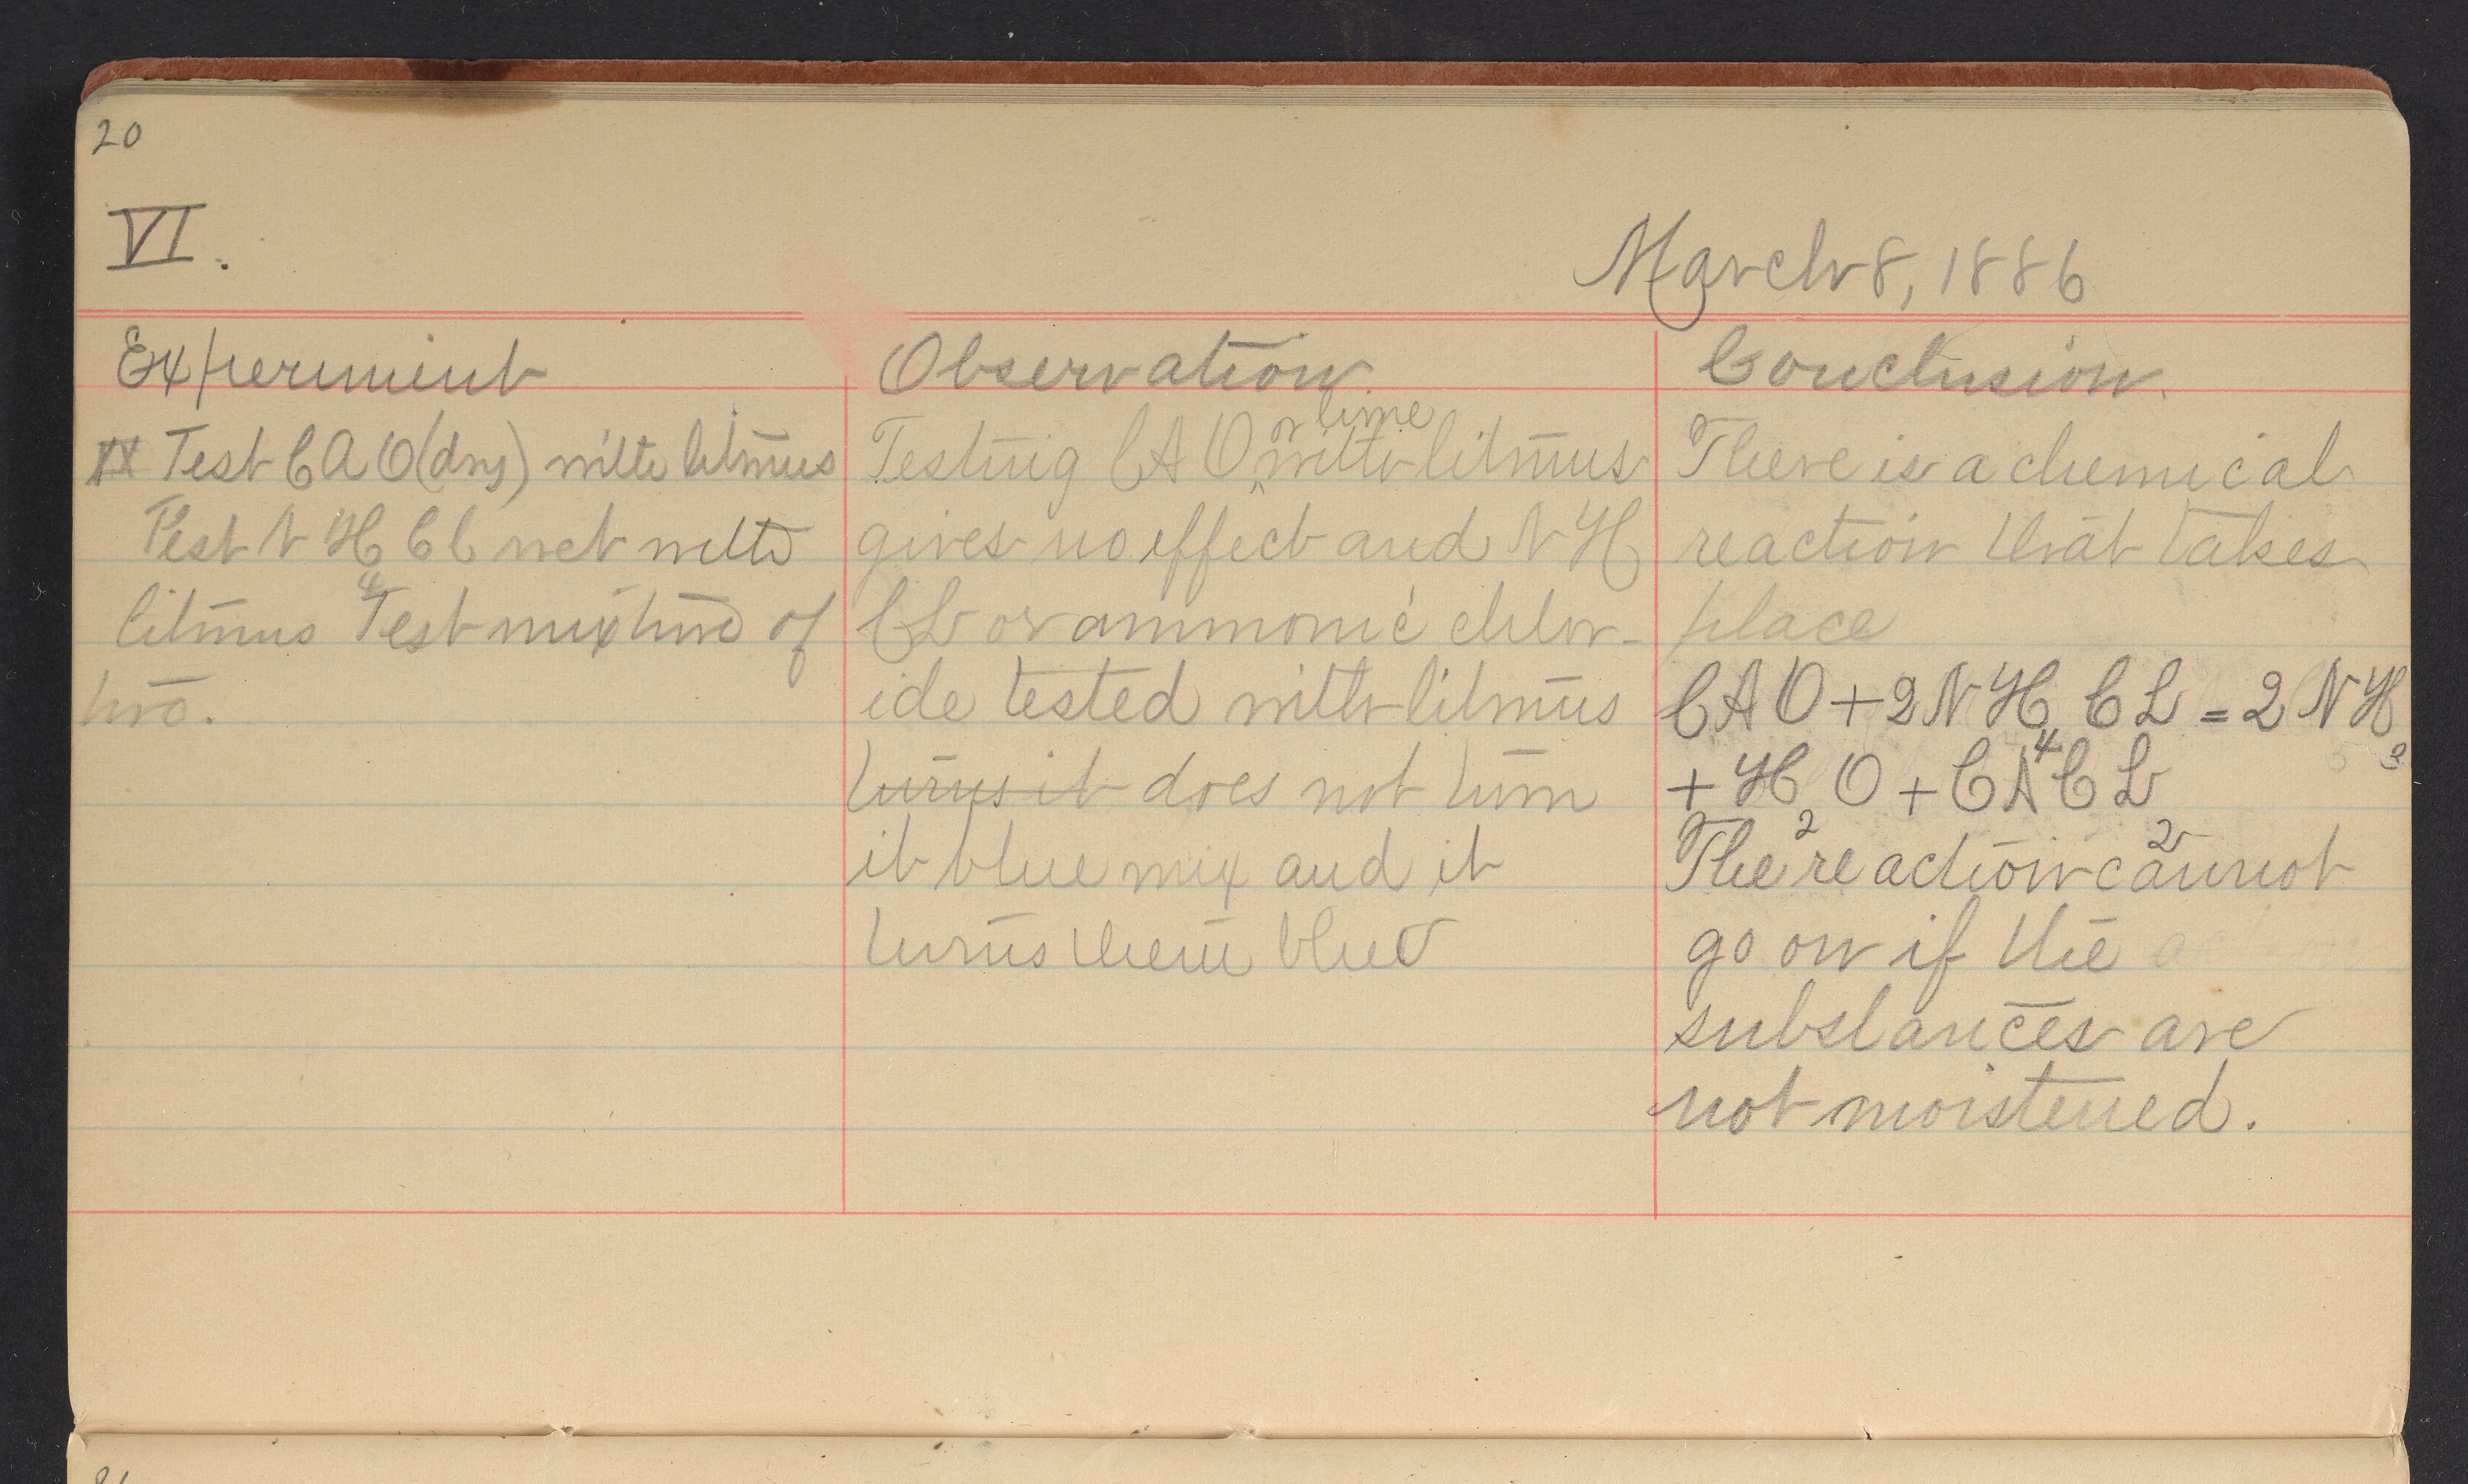 20
VI.
March 8, 1886
Experiment
Test CAO (dry) with litmus
Test NH4Cl wet with
litmus Test mixture of
two.
Observation.
Testing CAO or lime with litmus
gives no effect and NH
CL or ammonic chlor-
ide tested with litmus
turns it does not turn
it blue mix and it
turns them blue
Conclusion.
There is a chemical
reaction that takes
place
CAO + 2NH4CL = 2NH3
+ H2O + CACL2
The reaction cannot
go on if the
substances are
not moistened.